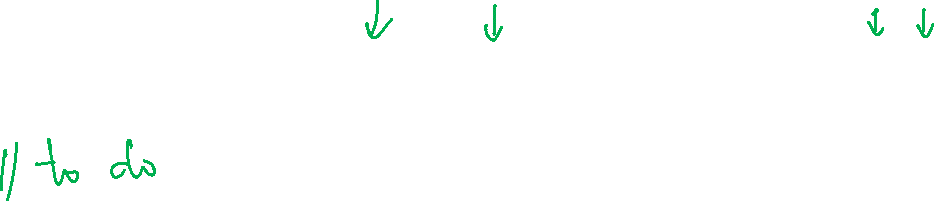 ↓ ↓ ↓ ↓
// to do